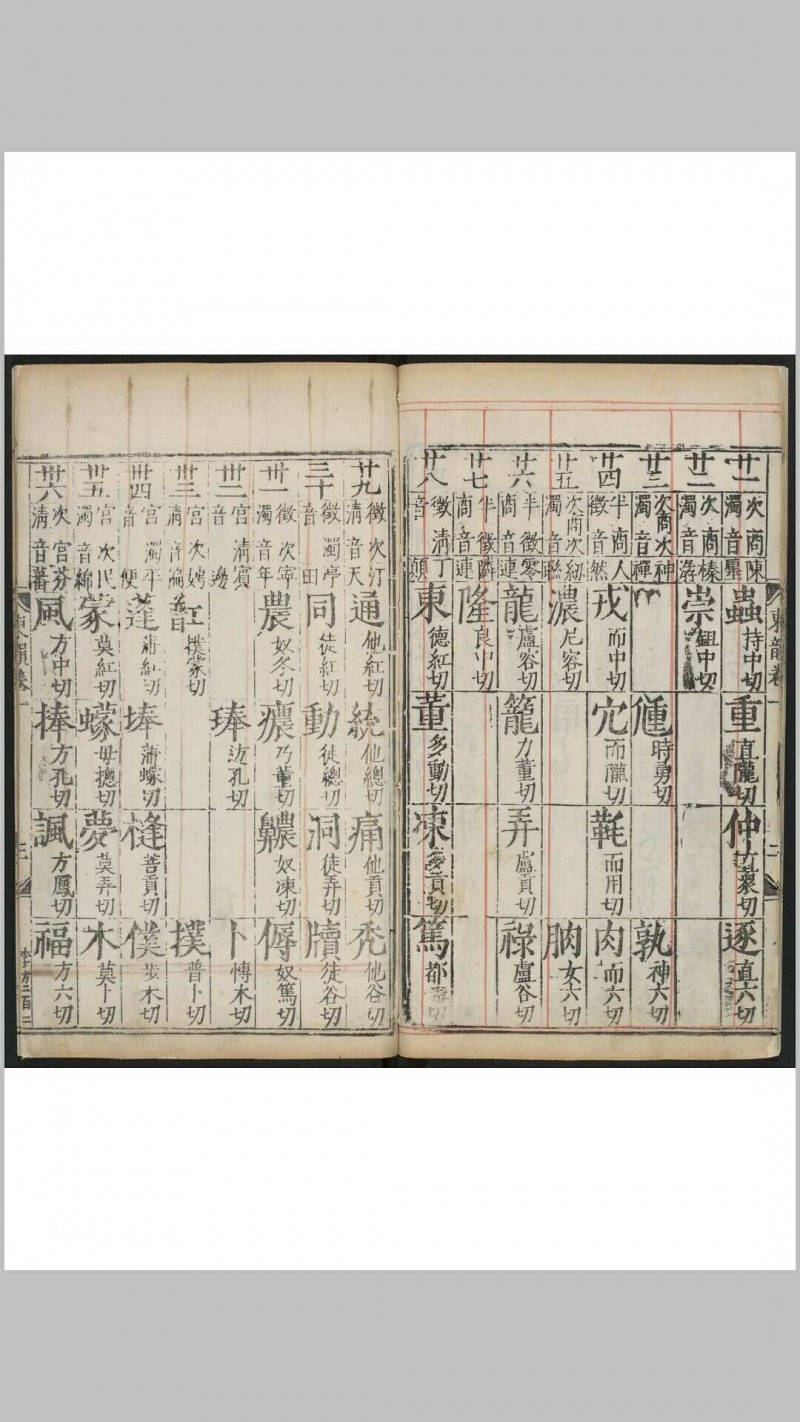 廿一 次商濁音 陳㕓 蟲持中切 重直隴切 仲直衆切 逐直六切
廿二 次商濁音 榛潺 崇鉏中切
廿三 次商次濁音 神禪 尰時勇切 孰神六切
廿四 半商徵音 人然 戎而中切 宂而隴切 鞋而用切 肉而六切
廿五 次商次濁音 紉聯 濃尼容切 朒女六切
廿六 半徵商音 零連 龍盧容切 籠力董切 弄盧貢切 祿盧谷切
廿七 半徵商音 隣連 隆良中切
廿八 徵清音 丁顛 東德紅切 董多動切 凍多貢切 篤都毒切
東韻卷一
二
廿九 徵次清音 汀天 通他紅切 統他總切 痛他貢切 禿他谷切
三十 徵濁音 亭田 同徒紅切 動徒總切 洞徒弄切 牘徒谷切
卅一 徵次濁音 寜年 農奴冬切 癑乃董切 齈奴凍切 傉奴篤切
卅二 宮清音 賓邊 琫边孔切 卜博木切
卅三 宮次清音 娉偏 撲蒙切 撲普卜切
卅四 宮濁音 平便 蓬蒲紅切 埲蒲蠓切 槰菩貢切 僕步木切
卅五 宮次濁音 民綿 蒙莫紅切 蠓母摠切 夢莫弄切 木莫卜切
卅六 次宮清音 芬蕃 風方中切 捧方孔切 諷方鳳切 福方六切
東韻卷一
三